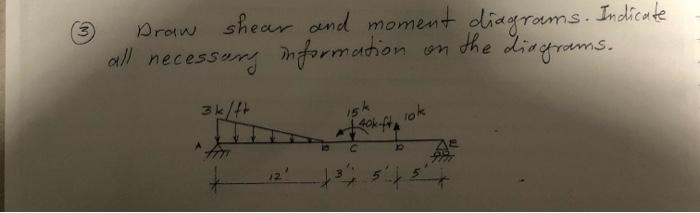 3 Draw shear and moment diagrams. Indicate
all necessary information on the diagrams.
3k/ft 15k 40k-ft 10k
A B C D E
12' 3' 5' 5'